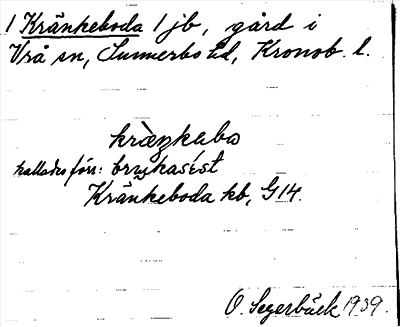 1 Kränkeboda 1 jb, gård i
Vrå sn, Sunnerbo hd, Kronob. l.
kræ̀ŋkabo
kallades förr: brŋkasést
Kränkeboda kb, G14.
O. Segerbäck 1939.